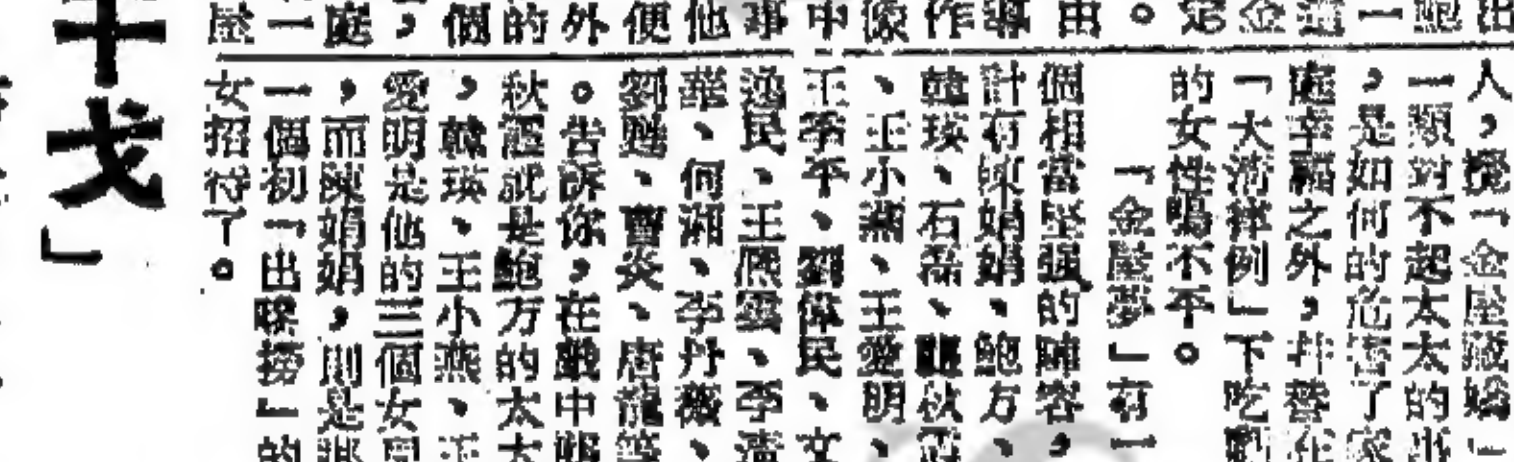 出
鮑
一
金
定
。
由
導
作
像
中
事
他
便
外
的
個
，
庭一
屋
人，攪「金屋藏嬌」
一類對不起太太的
，是如何的危害了家
庭幸福之外，并替在
「大清律例」下吃虧
的女性鳴不平。
「金屋夢」有一
個相當堅强的陣容，
計有陳娟娟、鮑方、
韓瑛、石磊、龔秋霞
、王小燕、王愛明、
王季平、劉偉民、文
逸民、王熙雲、李清
華、何湘、李丹薇、
劉甦、曹炎、唐龍等
。告訴你，在戲中龔
秋霞就是鮑方的太太
，韓瑛、王小燕、王
愛明是他的三個女兒
，而陳娟娟，則是那
一個初「出嚟撈」的
女招待了。
干戈」